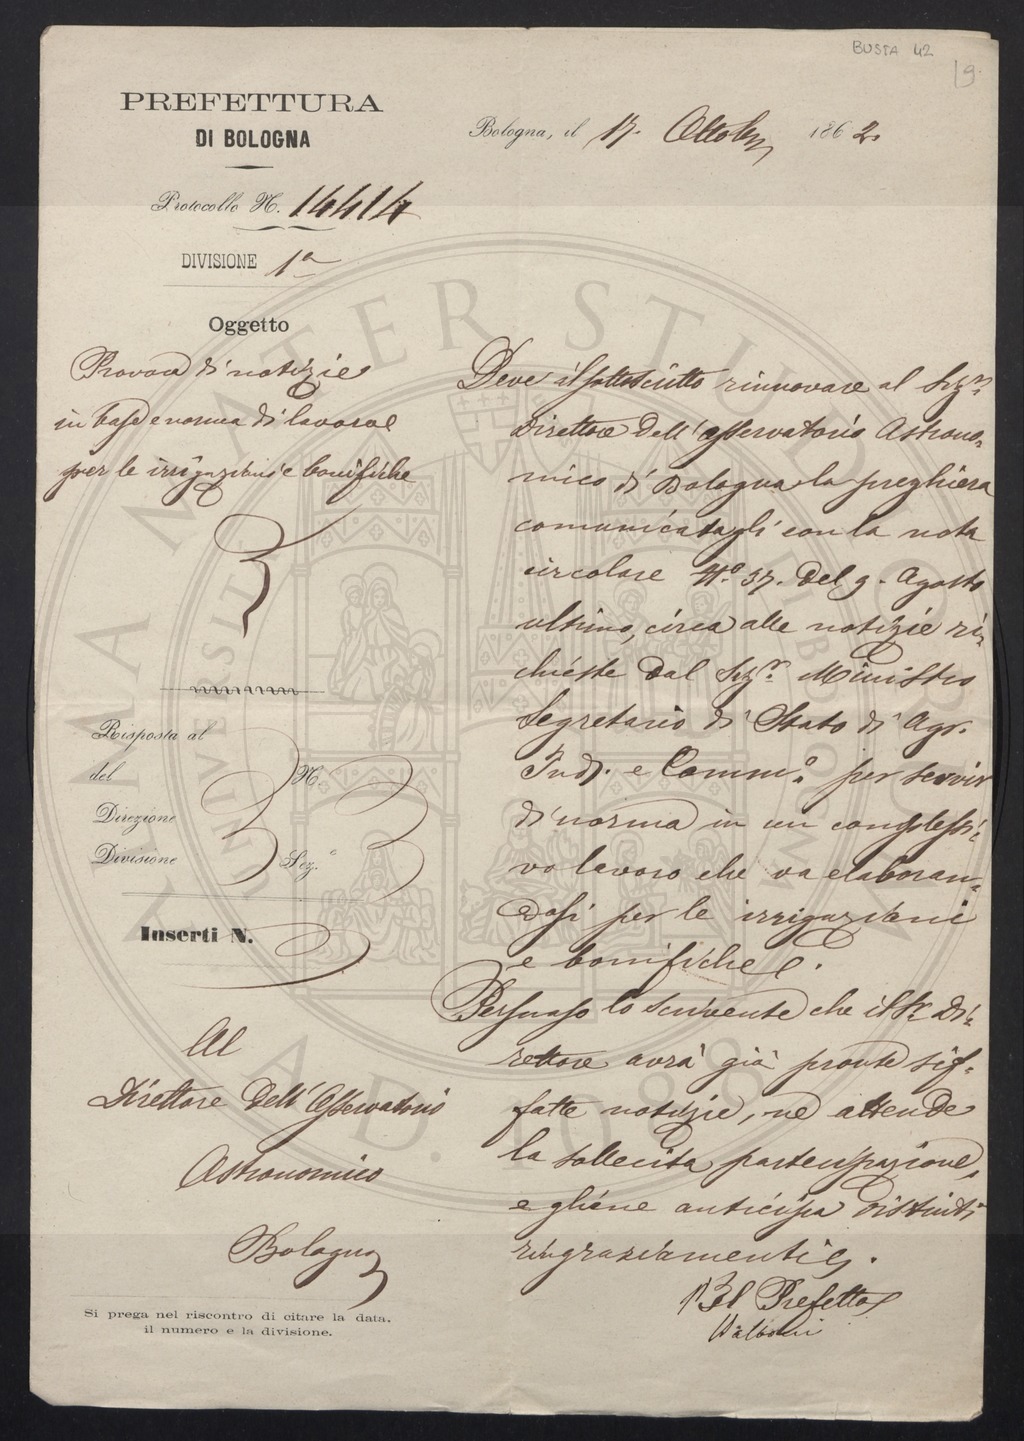 BUSTA 42
19.
PREFETTURA
DI BOLOGNA
Bologna, il 17. Ottobre 1862.
Protocollo N. 14414
DIVISIONE 1a
Oggetto
di notizie
in base e norma di lavoro
per le irrigazioni e bonifiche
Risposta al
del N.
Direzione
Divisione Sez.e
Inserti N.
Al
Direttore dell'Osservatorio
Astronomico
Bologna
Si prega nel riscontro di citare la data,
il numero e la divisione.
Deve il sottoscritto rinnovare al Sigr.
Direttore dell'Osservatorio Astrono-
mico di Bologna la preghiera
comunicatagli con la nota
circolare No. 37. del 9. Agosto
ultimo, circa alle notizie ri-
chieste dal Sigr. Ministro
Segretario di Stato di Agr.
Ind. e Commo. per servir
di norma in un complessi-
vo lavoro che va elaboran-
dosi per le irrigazioni
e bonifiche.
Persuaso lo scrivente che il Sr. Di-
rettore avrà già pronte sif-
fatte notizie, ne attende
la sollecita partecipazione,
e gliene anticipa distinti
ringraziamenti.
Pel Prefetto
ALMA MATER STUDIORUM
UNIVERSITÀ DI BOLOGNA
A.D. 1088